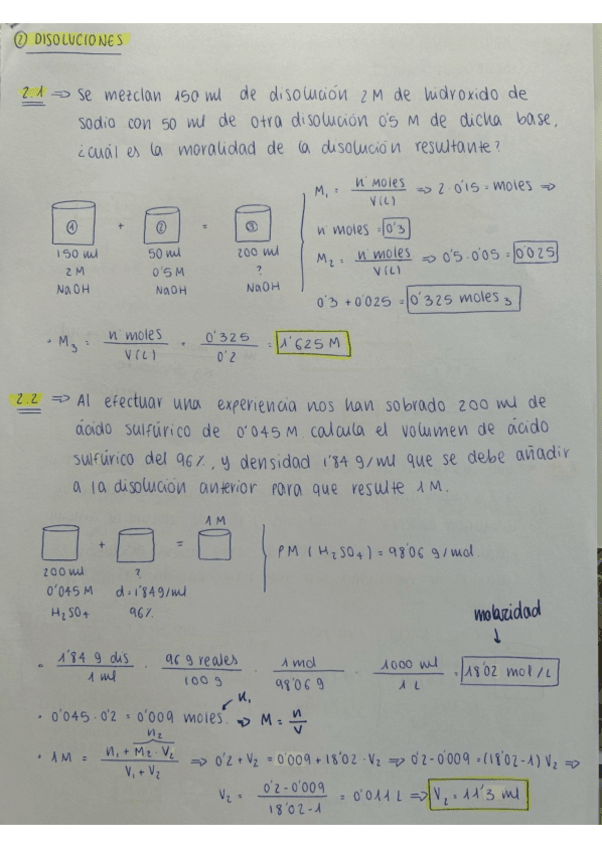 ② DISOLUCIONES
2.1 ⇒ Se mezclan 150 ml de disolución 2M de hidroxido de
sodio con 50 ml de otra disolución 0'5 M de dicha base,
¿cuál es la moralidad de la disolución resultante?
① + ② = ③
150 ml 50 ml 200 ml
2 M 0'5 M ?
NaOH NaOH NaOH
M₁ = n moles / V(L) ⇒ 2 · 0'15 = moles ⇒
n moles = 0'3
M₂ = n moles / V(L) ⇒ 0'5 · 0'05 = 0'025
0'3 + 0'025 = 0'325 moles ₃
· M₃ = n moles / V(L) = 0'325 / 0'2 = 1'625 M
2.2 ⇒ Al efectuar una experiencia nos han sobrado 200 ml de
ácido sulfúrico de 0'045 M. calcula el volumen de ácido
sulfúrico del 96%, y densidad 1'84 g/ml que se debe añadir
a la disolución anterior para que resulte 1 M.
1 M
+ =
200 ml ?
0'045 M d = 1'84 g/ml
H₂SO₄ 96%
PM (H₂SO₄) = 98'06 g/mol.
molaridad
· 1'84 g dis / 1 ml · 96 g reales / 100 g · 1 mol / 98'06 g · 1000 ml / 1 L = 18'02 mol/L
· 0'045 · 0'2 = 0'009 moles. n₁ ⇒ M = n / V
n₂
· 1M = n₁ + M₂ · V₂ / V₁ + V₂ ⇒ 0'2 + V₂ = 0'009 + 18'02 · V₂ ⇒ 0'2 - 0'009 = (18'02 - 1) V₂ ⇒
V₂ = 0'2 - 0'009 / 18'02 - 1 = 0'011 L ⇒ V₂ = 11'3 ml